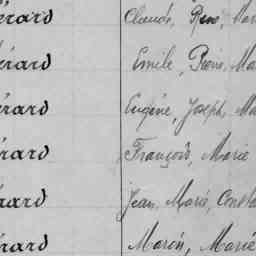 érard Claude, René, Mar
érard Emile, Pierre, Ma
érard Eugène, Joseph, Ma
érard François, Marie
érard Jean, Marie, Const
érard Marie